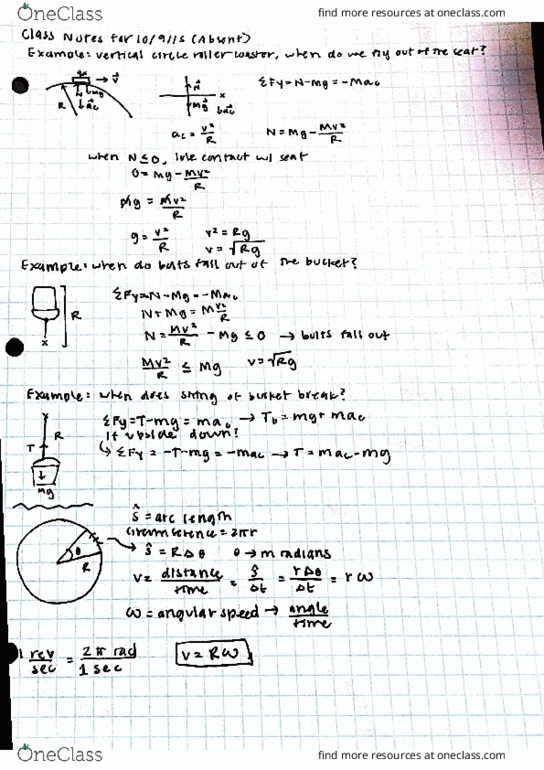 OneClass find more resources at oneclass.com
Class Notes for 10/9/15 (Absent)
Example: vertical circle roller coaster, when do we fly out of the seat?
v
N
ΣFy=N-Mg=-Mac
R
Mg
ac
x
Mg
ac
ac = v²/R
N = Mg - Mv²/R
when N ≤ 0, lose contact w/ seat
0 = Mg - Mv²/R
Mg = Mv²/R
g = v²/R
v² = Rg
v = √Rg
Example: when do bolts fall out of the bucket?
R
x
ΣFy=N-Mg=-Mac
N+Mg = Mv²/R
N = Mv²/R - Mg ≤ 0 → bolts fall out
Mv²/R ≤ Mg
v=√Rg
Example: when does string of bucket break?
R
T
Mg
ΣFy=T-mg = mac → Tb = mg + mac
If upside down?
ΣFy = -T-mg = -mac → T = mac - mg
ŝ = arc length
circumference = 2πr
θ
R
ŝ = RΔθ θ → in radians
v = distance/time = ŝ/Δt = rΔθ/Δt = rω
ω = angular speed → angle/time
1 rev/sec = 2π rad/1 sec
v = Rω
OneClass find more resources at oneclass.com